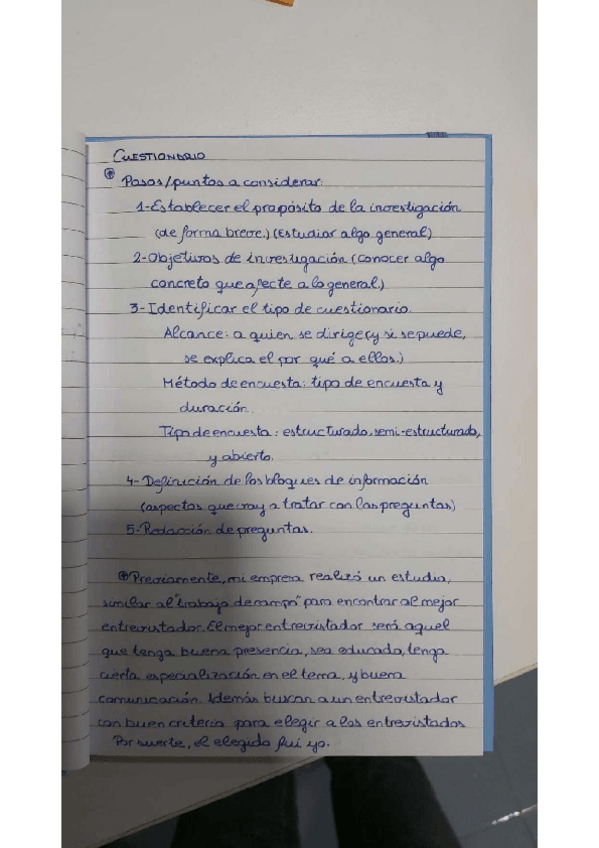 CUESTIONARIO
Pasos/puntos a considerar:
1-Establecer el propósito de la investigación
(de forma breve.) (Estudiar algo general)
2-Objetivos de investigación (Conocer algo
concreto que afecte a lo general.)
3-Identificar el tipo de cuestionario.
Alcance: a quien se dirige (y si se puede,
se explica el por qué a ellos.)
Método de encuesta: tipo de encuesta y
duración.
Tipo de encuesta: estructurado, semi-estructurado,
y abierto.
4-Definición de los bloques de información
(aspectos que voy a tratar con las preguntas)
5-Redacción de preguntas.
Previamente, mi empresa realizó un estudio,
similar al "trabajo de campo" para encontrar al mejor
entrevistador. El mejor entrevistador será aquel
que tenga buena presencia, sea educado, tenga
cierta especialización en el tema, y buena
comunicación. Además buscan a un entrevistador
con buen criterio para elegir a los entrevistados
Por suerte, el elegido fui yo.